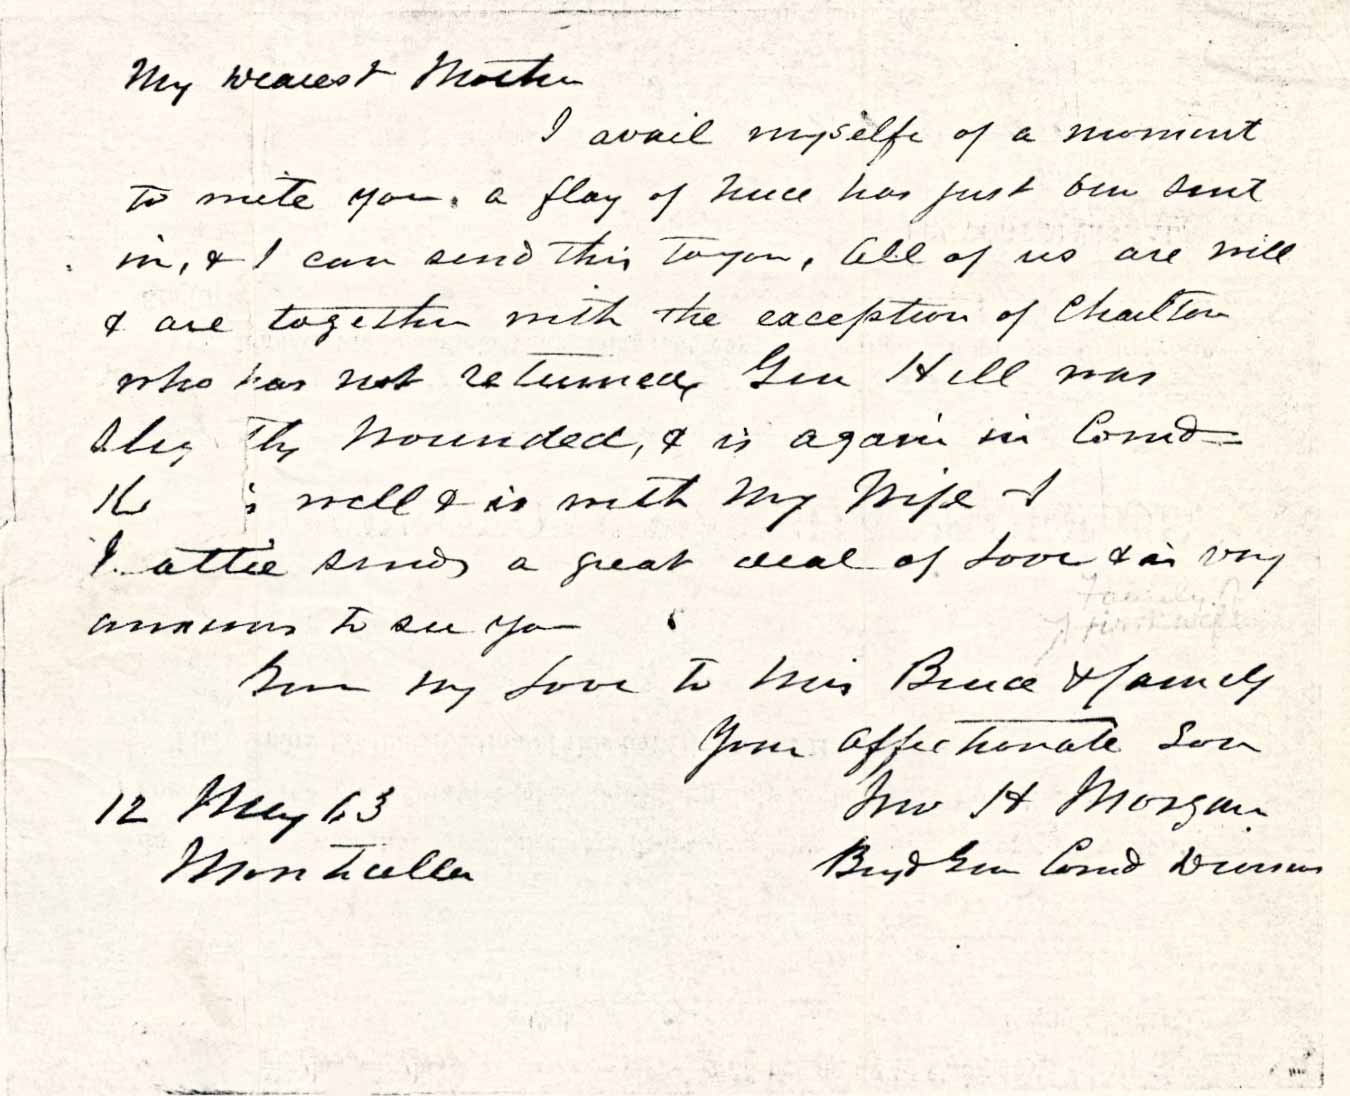 My Dearest Mother
I avail myselfe of a moment
to write you. a flag of truce has just been sent
in, & I can send this to you, All of us are well
& are together with the exception of Charlton
who has not returned, Gen Hill was
Wounded, & is again in Comd
well & is with My Wife
sends a great deal of Love & is very
anxious to see you
Give my Love to Mrs Bruce & family
Your Affectionate Son
Jno H Morgan
12 May 63
Brig Gen Comd Division
Monticello